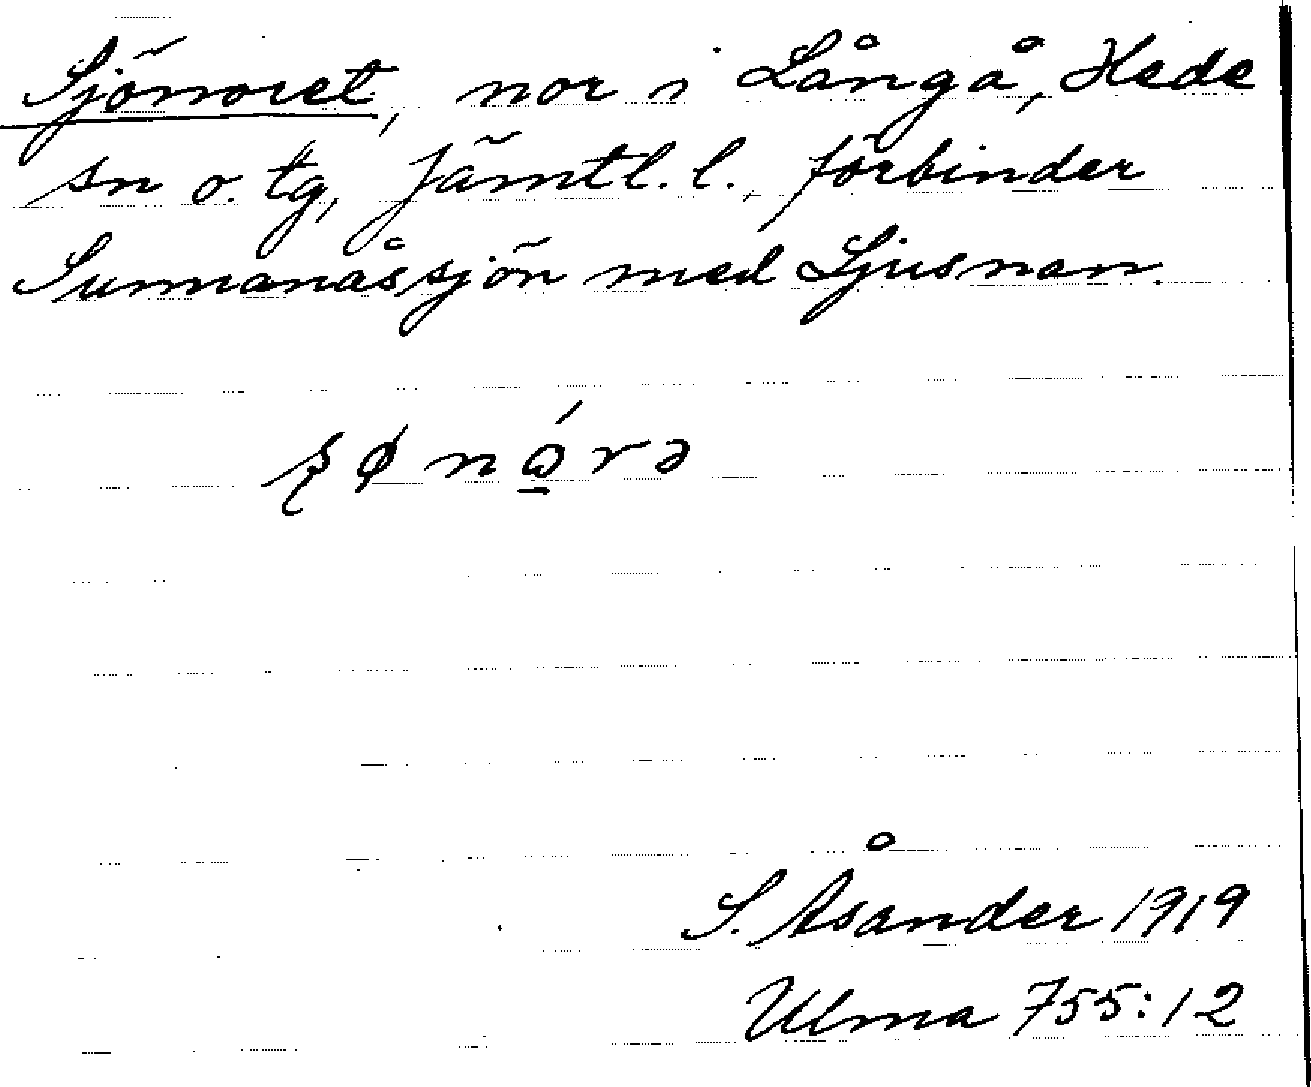 Sjönoret, nor i Långå, Hede
sn o. tg, Jämtl. l., förbinder
Sunnanåssjön med Ljusnan.
S. Åsander 1919
Ulma 755:12